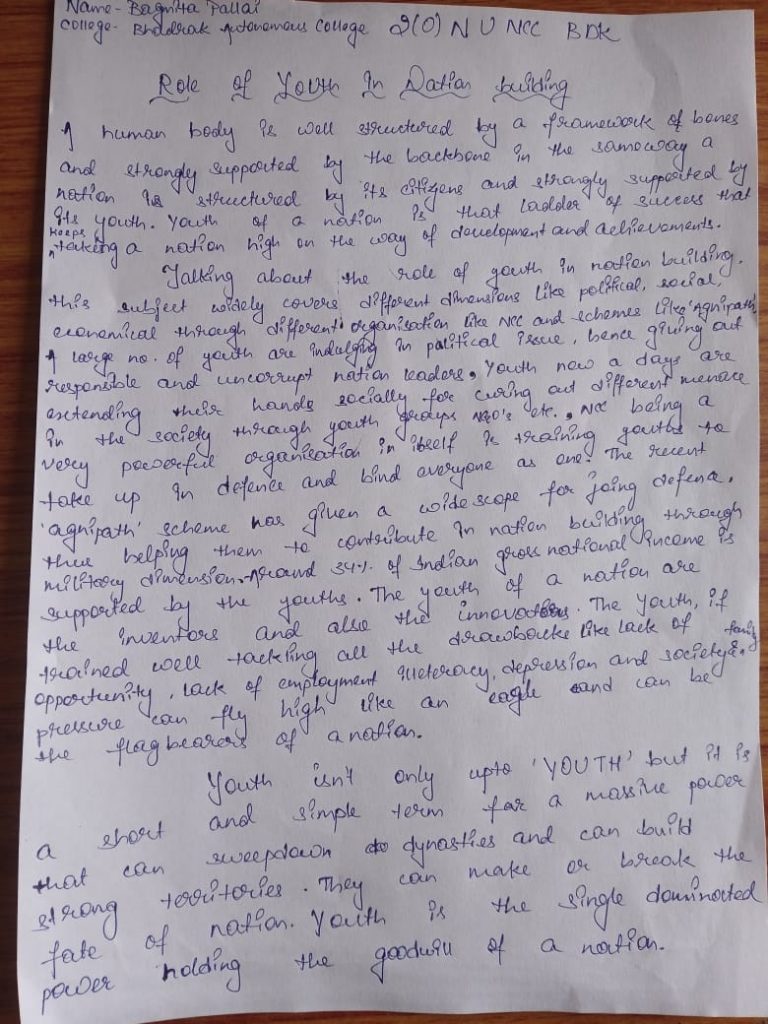 Name- Bagmita Pallai
College- Bhadrak Autonomous College 2(O) N U NCC BDK
Role of Youth In Nation building
A human body is well structured by a framework of bones
and strongly supported by the backbone in the sameway a
nation is structured by its citizens and strongly supported by
its youth. Youth of a nation is that ladder of success that
keeps taking a nation high on the way of development and achievements.
Talking about the role of youth in nation building.
this subject widely covers different dimensions like political, social,
economical through different organisation like NCC and schemes like 'Agnipath'
A large no. of youth are indulging in political issue, hence giving out
responsible and uncorrupt nation leaders. Youth now a days are
extending their hands socially for curing out different menace
in the society through youth groups NGO's etc. NCC being a
very powerful organisation in itself is training youths to
take up in defence and bind everyone as one. The recent
'agnipath' scheme has given a wide scope for joing defence.
thus helping them to contribute in nation building through
military dimension. Around 34% of Indian gross national income is
supported by the youths. The youth of a nation are
the inventors and also the innovators. The youth, if
trained well tackling all the drawbacks like lack of
opportunity, lack of employment illeteracy, depression and society & family
pressure can fly high like an eagle and can be
the flagbearers of a nation.
Youth isn't only upto 'YOUTH' but it is
a short and simple term for a massive power
that can sweepdown dynasties and can build
strong territories. They can make or break the
fate of nation. Youth is the single dominated
power holding the goodwill of a nation.